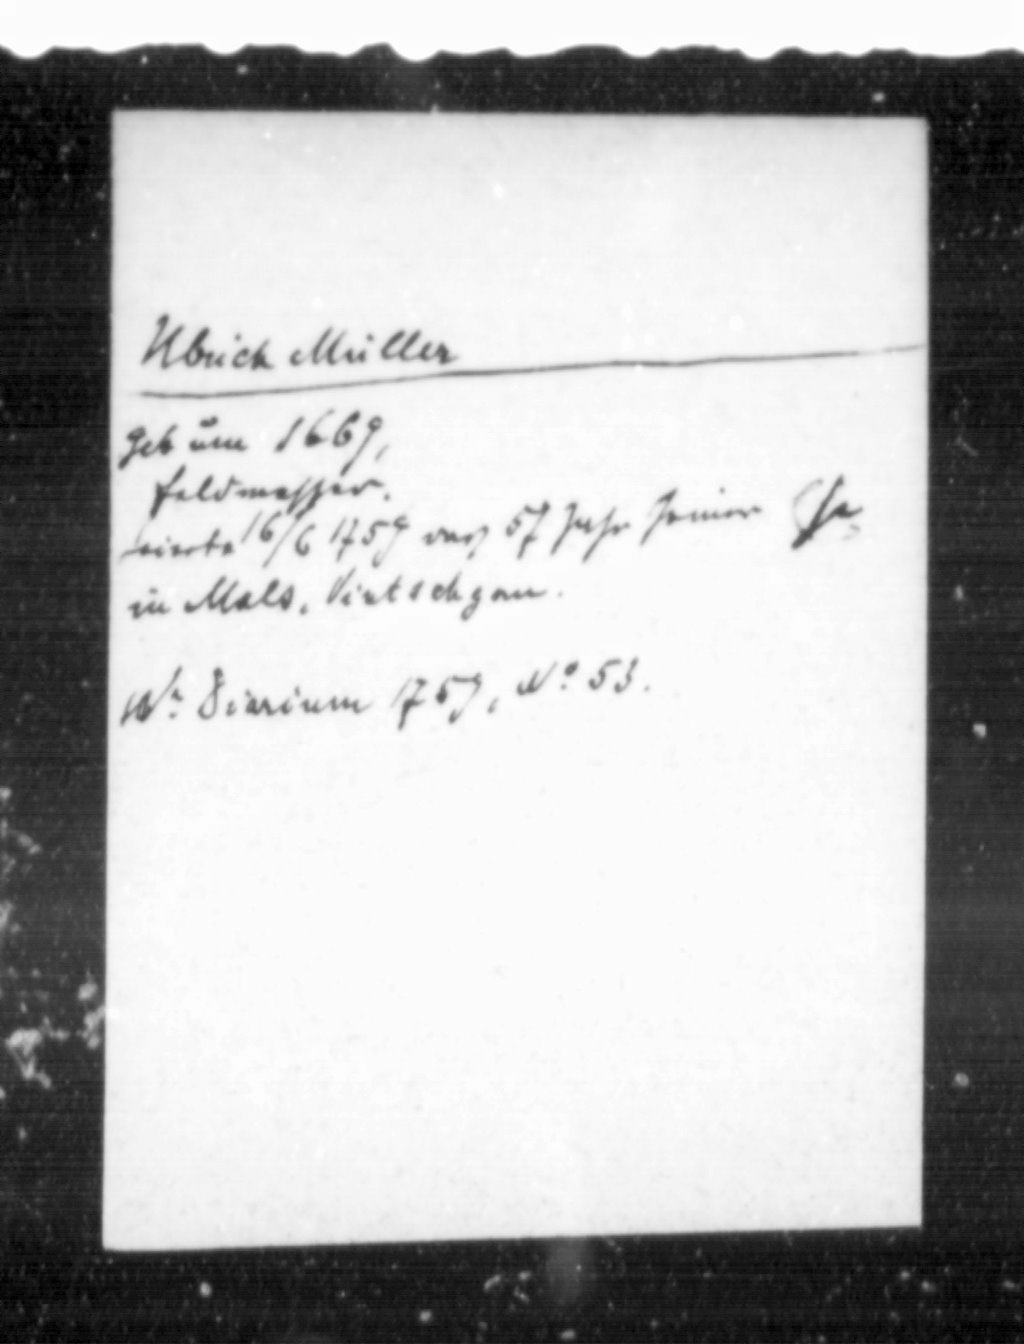 Ulrich Müller
geb um 1669,
Feldmesser.
feierte 16/6 1759 nach 57 Jahr seiner Ehe
in Mals, Vintschgau.
Wr. Diarium 1759, No. 53.